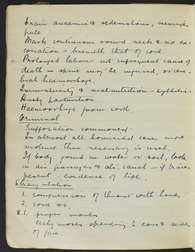 Brain anaemic & oedematous, meninges
pale
Mark continuous around neck & no ex-
coriation - breadth that of cord.
Prolonged labour not infrequent cause of
death - spine may be injured or cere-
bral haemorrhage.
Immaturity & malnutrition - syphilis
Hasty parturition
Haemorrhage from cord
Criminal
Suffocation commonest
In almost all homicidal cases, more
violence than necessary is used.
If body found in water or soil, look
in air passages & ali. canal - if
present - evidence of life.
Strangulation
1. compression of throat with hand,
2. cord &c.
S.1. finger marks
Ecchymoses extending to ears & side
of face.